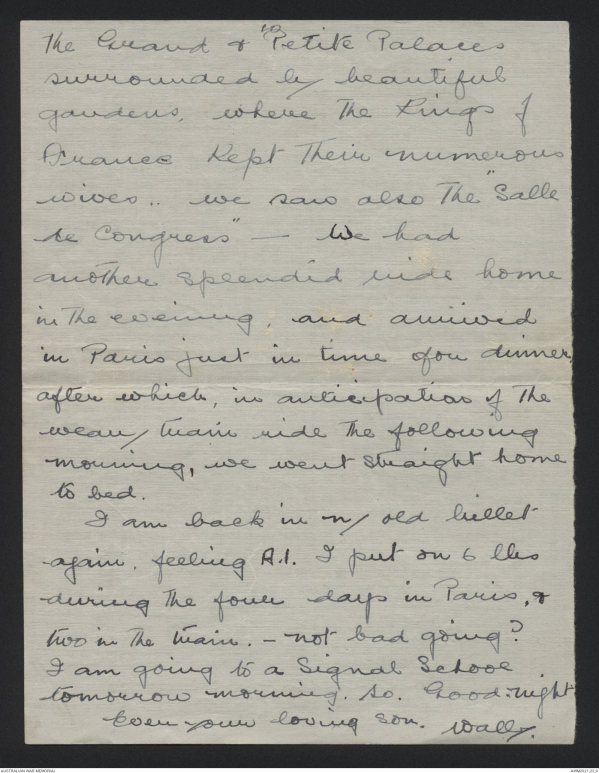 10
The Grand & Petite Palaces
surrounded by beautiful
gardens, where the Kings of
France kept their numerous
wives.. we saw also the "Salle
de Congress" — We had
another splendid ride home
in the evening, and arrived
in Paris just in time for dinner,
after which, in anticipation of the
weary train ride the following
morning, we went straight home
to bed.
I am back in my old billet
again, feeling A.1. I put on 6 lbs
during the four days in Paris, &
two in the train. — not bad going?
I am going to a Signal School
tomorrow morning. So. Good-night
Ever your loving son. Wally.
AUSTRALIAN WAR MEMORIAL